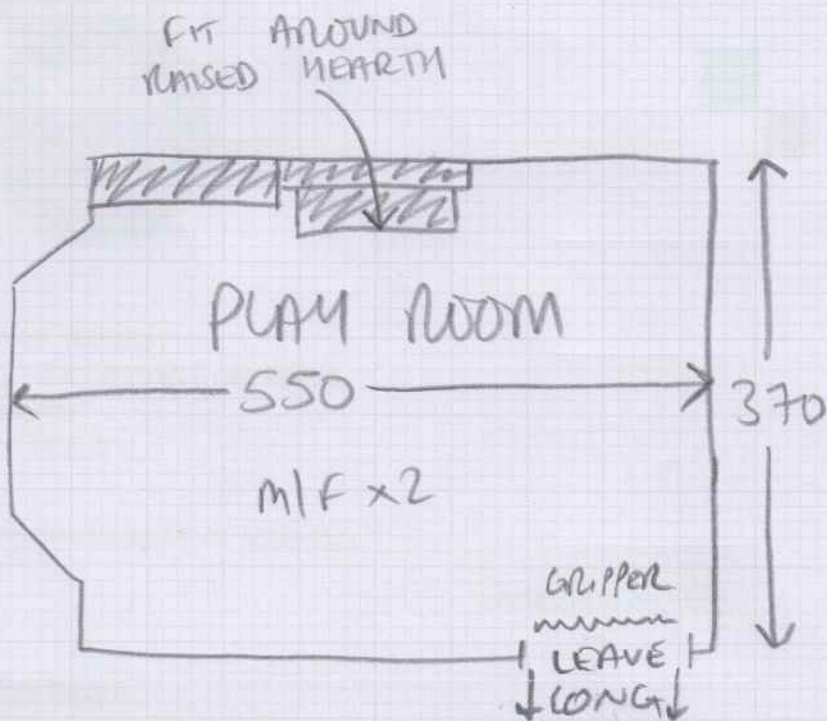 FIT AROUND
RAISED HEARTH
PLAY ROOM
550
370
M/F x2
GRIPPER
LEAVE
LONG